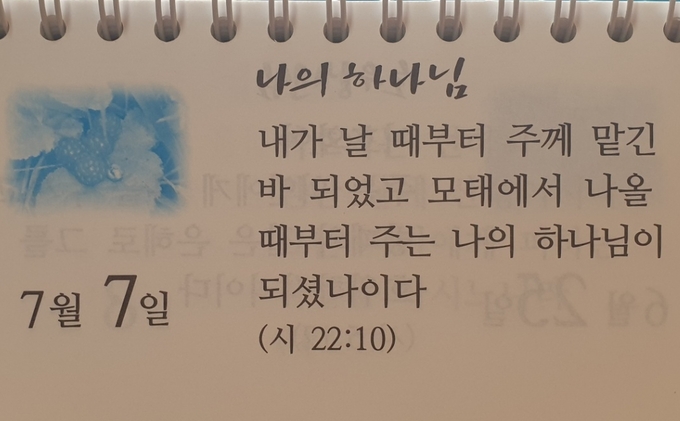 나의 하나님
내가 날 때부터 주께 맡긴
바 되었고 모태에서 나올
때부터 주는 나의 하나님이
되셨나이다
(시 22:10)
7월 7일